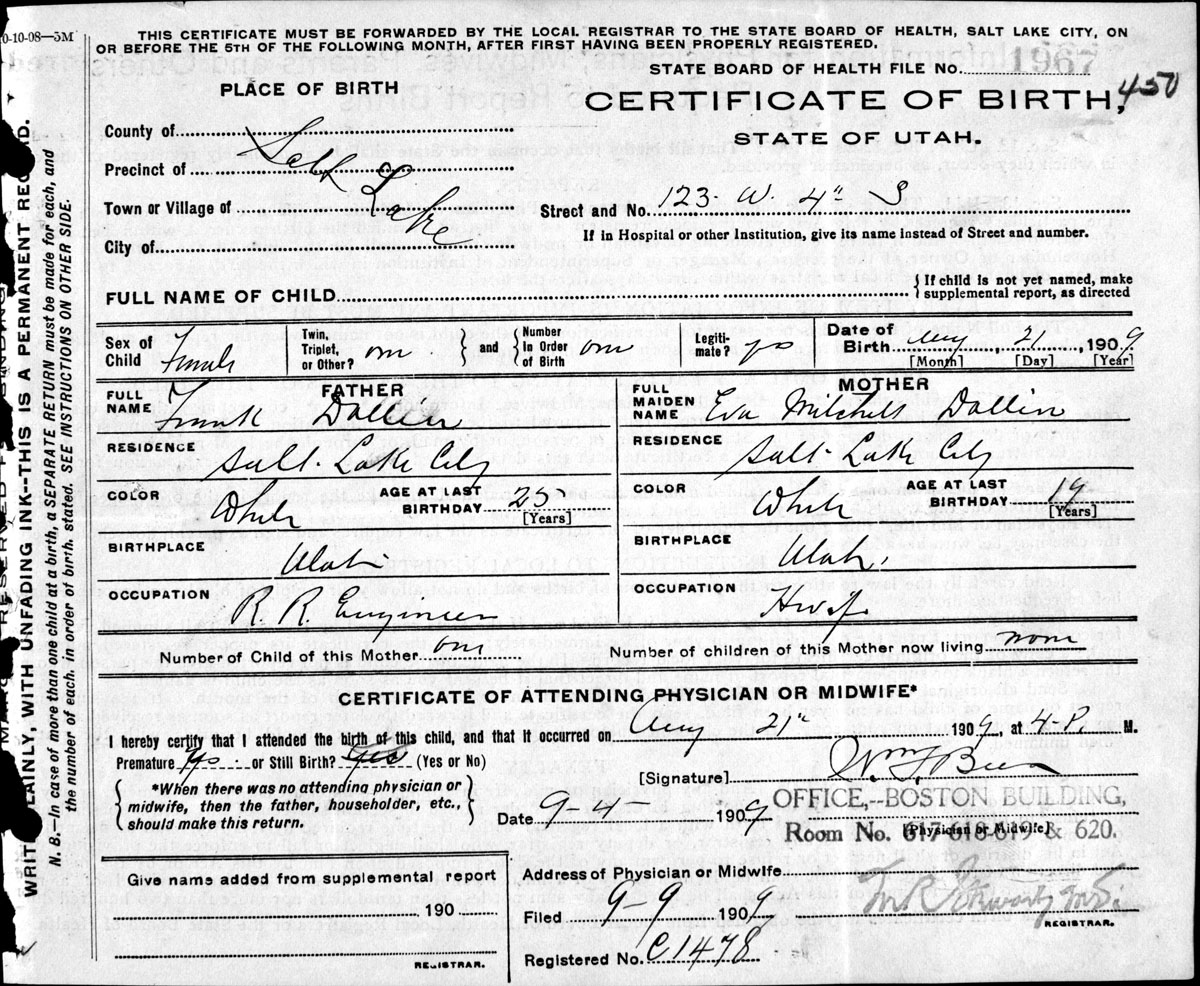 0-10-08—5M
THIS CERTIFICATE MUST BE FORWARDED BY THE LOCAL REGISTRAR TO THE STATE BOARD OF HEALTH, SALT LAKE CITY, ON
OR BEFORE THE 5TH OF THE FOLLOWING MONTH, AFTER FIRST HAVING BEEN PROPERLY REGISTERED.
STATE BOARD OF HEALTH FILE NO. 1967
450
PLACE OF BIRTH
CERTIFICATE OF BIRTH,
STATE OF UTAH.
County of
Precinct of Salt
Town or Village of Lake
City of
Street and No. 123 W 4" S
If in Hospital or other Institution, give its name instead of Street and number.
FULL NAME OF CHILD
{ If child is not yet named, make
supplemental report, as directed
Sex of Child Female
Twin, Triplet, or Other? one } and { Number in Order of Birth one
Legitimate? yes
Date of Birth Aug, 21, 1909
[Month] [Day] [Year]
FATHER
FULL NAME Frank Dallin
RESIDENCE Salt Lake City
COLOR White
AGE AT LAST BIRTHDAY 25 [Years]
BIRTHPLACE Utah
OCCUPATION R. R. Engineer
MOTHER
FULL MAIDEN NAME Eva Mitchell Dallin
RESIDENCE Salt Lake City
COLOR White
AGE AT LAST BIRTHDAY 19 [Years]
BIRTHPLACE Utah.
OCCUPATION Hwf.
Number of Child of this Mother one
Number of children of this Mother now living none
CERTIFICATE OF ATTENDING PHYSICIAN OR MIDWIFE*
I hereby certify that I attended the birth of this child, and that it occurred on Aug 21st 1909, at 4 P. M.
Premature yes or Still Birth? yes (Yes or No)
{ *When there was no attending physician or
midwife, then the father, householder, etc.,
should make this return. }
[Signature] Wm F Beer
Date 9-4- 1909
OFFICE,--BOSTON BUILDING,
Room No. 617-618-619 & 620.
[Physician or Midwife]
Give name added from supplemental report
190
REGISTRAR.
Address of Physician or Midwife
Filed 9 9 1909
REGISTRAR.
Registered No. C1478
WRITE PLAINLY, WITH UNFADING INK--THIS IS A PERMANENT RECORD.
N. B.—In case of more than one child at a birth, a SEPARATE RETURN must be made for each, and
the number of each, in order of birth, stated. SEE INSTRUCTIONS ON OTHER SIDE.